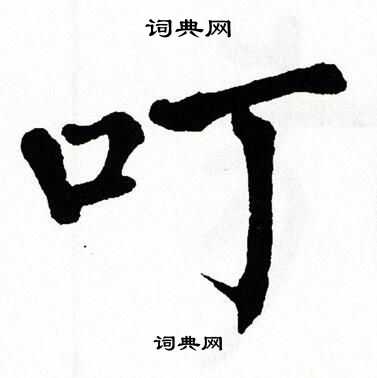 词典网
叮
词典网